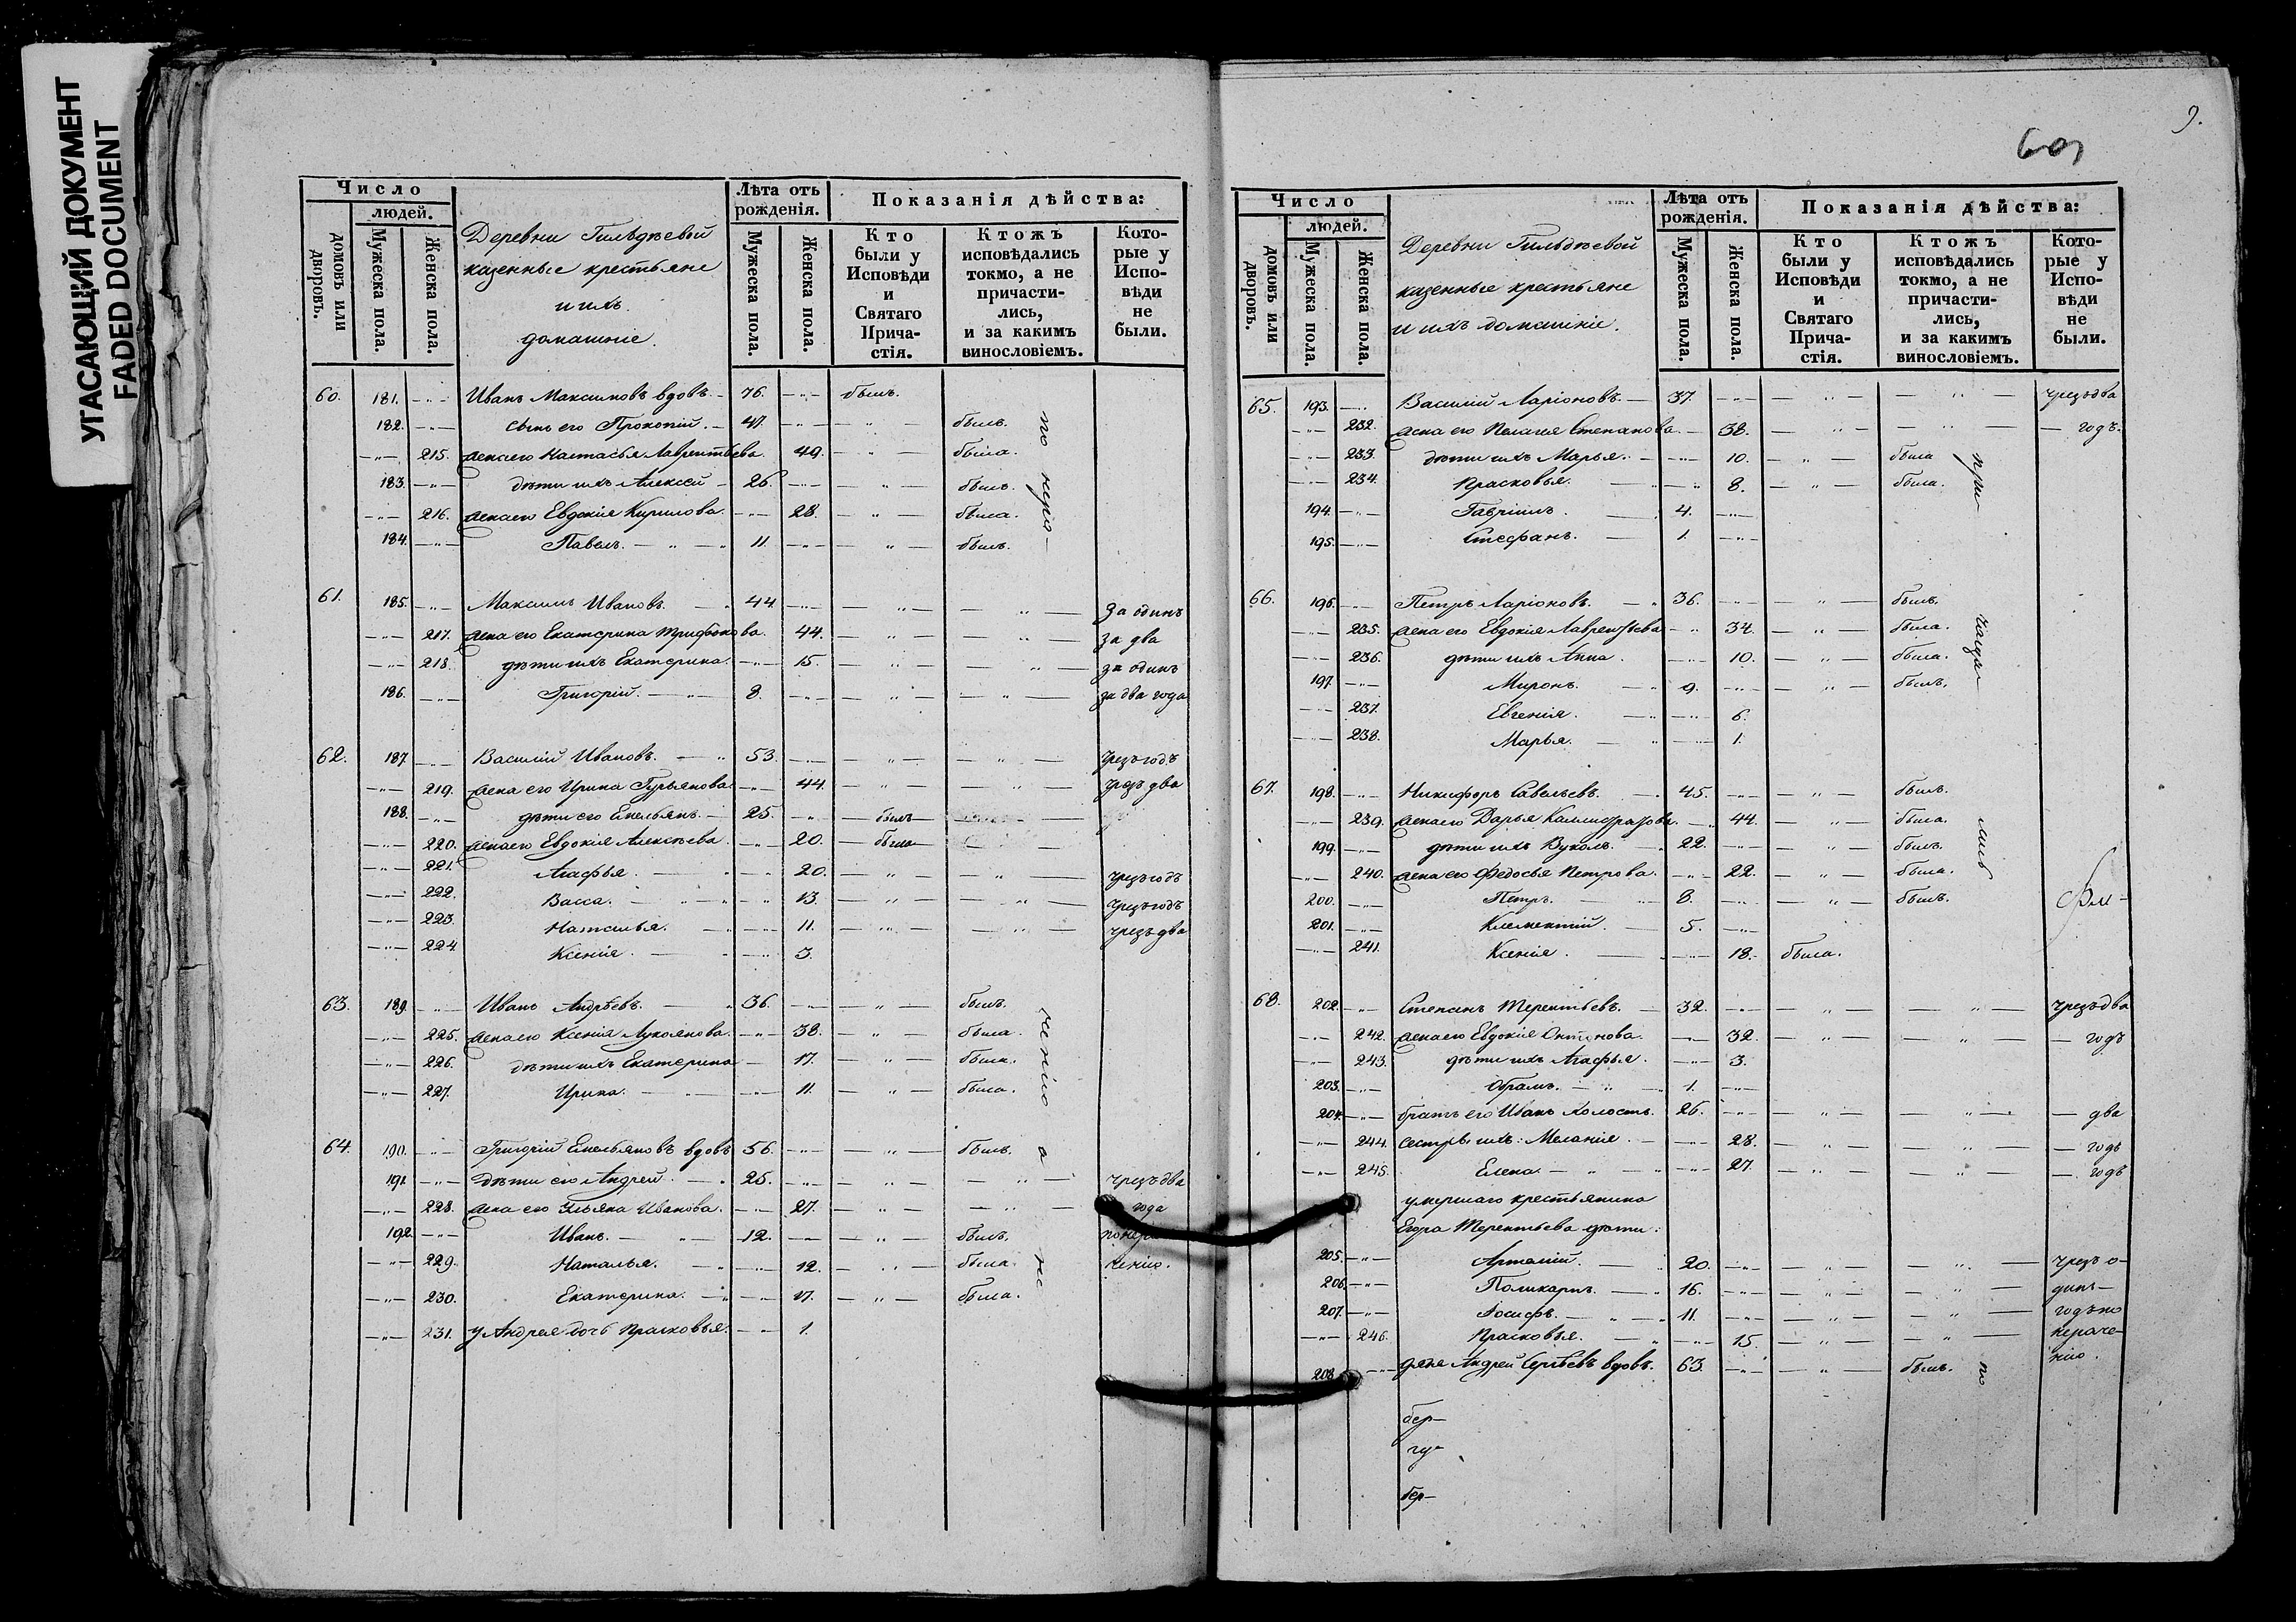 УГАСАЮЩИЙ ДОКУМЕНТ
FADED DOCUMENT
Число
людей.
домовъ или дворовъ.
Мужеска пола.
Женска пола.
Деревни Гильдѣевой
казенные крестьяне
и ихъ
домашніе.
Лѣта отъ рожденія.
Мужеска пола.
Женска пола.
Показанія дѣйства:
Кто были у Исповѣди и Святаго Прича-стія.
Ктожъ исповѣдались токмо, а не причасти-лись, и за какимъ винословіемъ.
Кото-рые у Испо-вѣди не были.
60. 181. Иванъ Максимовъ вдовъ. 76. былъ.
182. сынъ его Прокопій. 47. былъ.
215. жена его Настасья Лаврентьева. 49. была.
183. дѣти ихъ Алексѣй 26. былъ.
216. жена его Евдокія Кирилова. 28. была.
184. Павелъ. 11. былъ.
по нера-
61. 185. Максимъ Ивановъ. 44. За одинъ
217. жена его Екатерина Трифонова. 44. за два
218. дѣти ихъ Екатерина. 15. за одинъ
186. Григорій. 8. за два года
62. 187. Василій Ивановъ. 53. Чрезъ годъ
219. жена его Ирина Гурьянова. 44. чрезъ два
188. дѣти его Емельянъ. 25. былъ
220. жена его Евдокія Алексѣева. 20. была
221. Агафья. 20. чрезъ годъ
222. Васса. 13. чрезъ годъ
223. Наталья. 11. чрезъ два
224. Ксенія. 3.
63. 189. Иванъ Андрѣевъ. 36. былъ.
225. жена его Ксенія Лукоянова. 38. была.
226. дѣти ихъ Екатерина 17. была.
227. Ирина. 11. была.
ченію
64. 190. Григорій Емельяновъ вдовъ 56. былъ.
191. дѣти его Андрей. 25. чрезъ два
228. жена его Ульяна Иванова. 27. года
192. Иванъ. 12. былъ. по нера
229. Наталья. 12. была. ченію.
230. Екатерина. 17. была.
231. у Андрея дочь Прасковья. 1.
а
не
9.
Число
людей.
домовъ или дворовъ.
Мужеска пола.
Женска пола.
Деревни Гильдѣевой
казенные крестьяне
и ихъ домашніе.
Лѣта отъ рожденія.
Мужеска пола.
Женска пола.
Показанія дѣйства:
Кто были у Исповѣди и Святаго Прича-стія.
Ктожъ исповѣдались токмо, а не причасти-лись, и за какимъ винословіемъ.
Кото-рые у Испо-вѣди не были.
65. 193. Василій Ларіоновъ. 37. чрезъ два
232. жена его Пелагея Степанова. 38. годъ.
233. дѣти ихъ Марья. 10. была
234. Прасковья. 8. была.
194. Гавріилъ. 4.
195. Стефанъ. 1.
при
66. 196. Петръ Ларіоновъ. 36. былъ.
235. жена его Евдокія Лаврентьева 34. была.
236. дѣти ихъ Анна. 10. была.
197. Миронъ. 9. былъ.
237. Евгенія. 6.
238. Марья. 1.
чаща
67. 198. Никифоръ Савельевъ. 45. былъ.
239. жена его Дарья Каллистратова. 44. была.
199. дѣти ихъ Вуколъ. 22. былъ.
240. жена его Федосья Петрова. 22. была.
200. Петръ. 8. былъ.
201. Климентій. 5.
241. Ксенія. 18. была.
лись
68. 202. Степанъ Терентьевъ. 32. чрезъ два
242. жена его Евдокія Антонова. 32. годъ
243. дѣти ихъ Агафья. 3.
203. Абрамъ. 1.
204. братъ его Иванъ холостъ. 26. два
244. сестры ихъ: Меланія. 28. годъ
245. Елена. 27. годъ
умершаго крестьянина
Егора Терентьева дѣти:
205. Артемій. 20. чрезъ о-
206. Поликарпъ. 16. динъ
207. Іосифъ. 11. годъ по
246. Прасковья. 15. нераче-
208. дядя Андрей Сергѣевъ вдовъ. 63. былъ. нію.
по